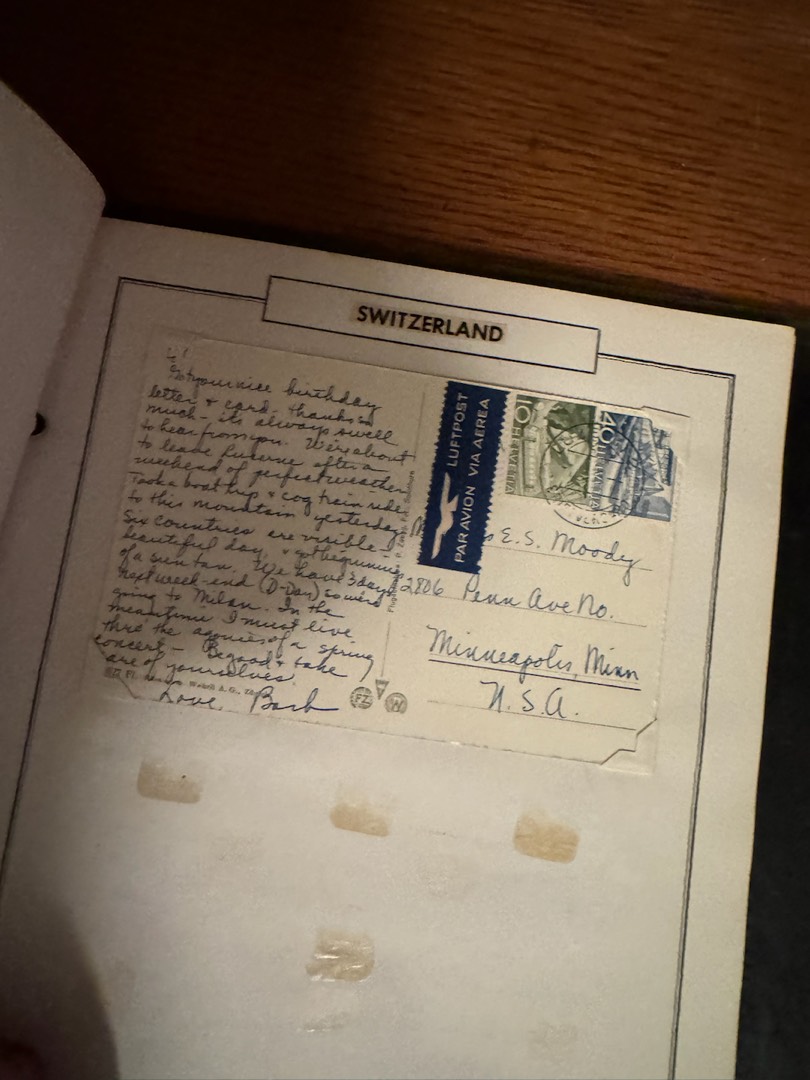 SWITZERLAND
Hi!
Got your nice birthday
letter & card - thanks so
much - it's always swell
to hear from you. We're about
to leave Lucerne after a
weekend of perfect weather.
Took a boat trip & cog train ride
to this mountain yesterday
Six countries are visible -
beautiful day, & got beginnings
of a sun tan. We have 3 days
next week-end (D-Day) so we're
going to Milan. In the
meantime I must live
thru the agonies of a spring
concert - Be good & take
care of yourselves.
Love, Barb
LUFTPOST
PAR AVION VIA AEREA
10 HELVETIA
40 HELVETIA
E.S. Moody
2806 Penn Ave No.
Minneapolis, Minn
U.S.A.
FZ
W